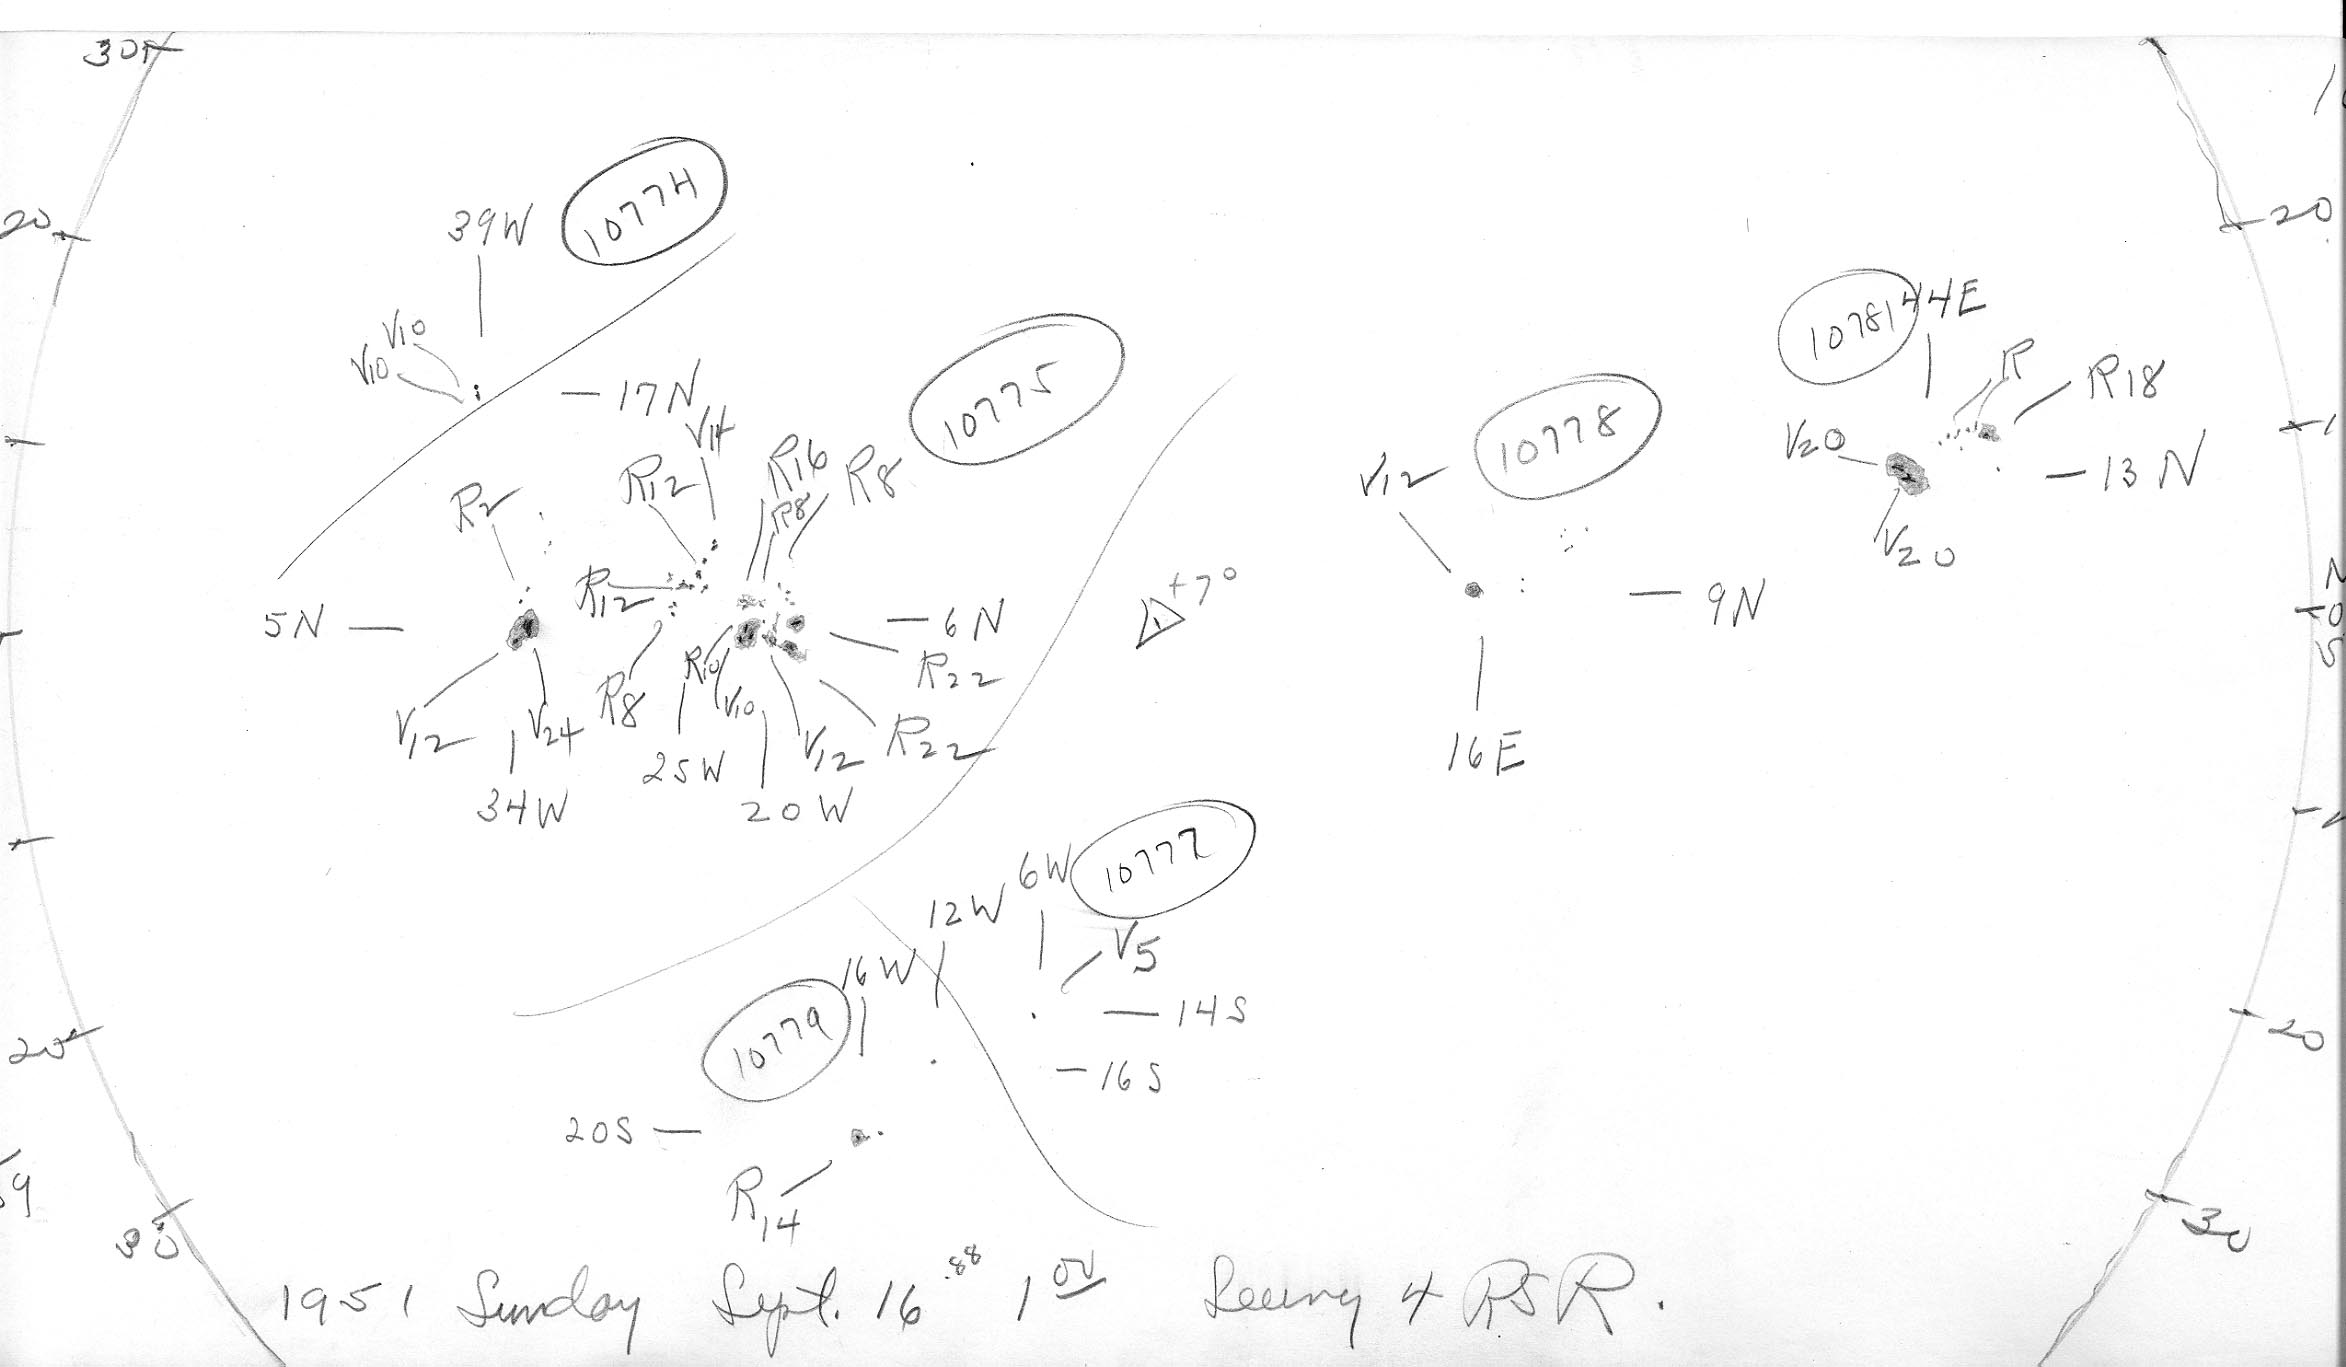 30
20
39W
10774
V10
V10
17N
10775
5N
R2
R12
V14
R16
R8
R8
R12
R8
R10
V10
6N
R22
R22
V12
V24
34W
25W
20W
V12
+7°
V12
10778
9N
16E
10781
44E
R
R18
V20
V20
13N
20
1
N
0
S
20
30
6W
10777
12W
V5
16W
14S
16S
10779
20S
R14
20
30
59
1951 Sunday Sept. 16 .88 1 00 Seeing 4 RSR.